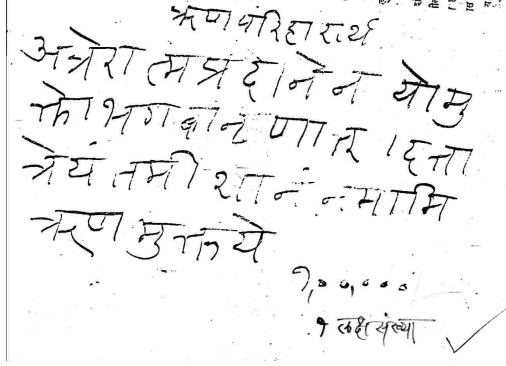 ऋण परिहारार्थ
अत्रेरात्मप्रदानेन योमु
क्तो भगवानृणात्। दत्ता
त्रेयं तमीशानं नमामि
ऋणमुक्तये
१,००,०००
१ लक्ष संख्या